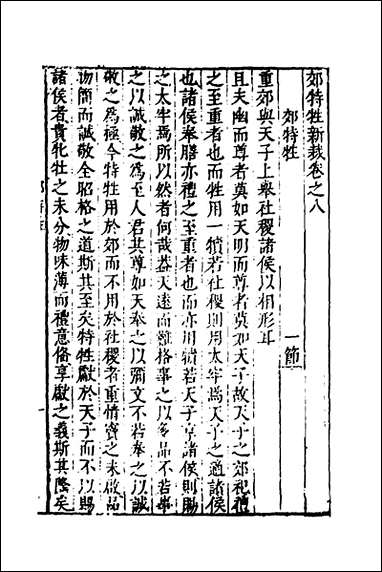 郊特牲新裁卷之八
郊特牲 一節
重郊與天子上舉社稷諸侯以相形耳
且夫幽而尊者莫如天明而尊者莫如天子故天子之郊祀禮
之至重者也而牲用一犢若社稷則用太牢焉天子之適諸侯
也諸侯奉膳亦禮之至重者也而亦用犢若天子享諸侯則賜
之太牢焉所以然者何哉蓋天遠而難格事之以多品不若事
之以誠敬之為至人君其尊如天奉之以彌文不若奉之以誠
敬之為極今特牲用於郊而不用於社稷者重情竇之未啟品
物簡而誠敬全昭格之道斯其至矣特牲獻於天子而不以賜
諸侯者貴牝牡之未分物味薄而禮意脩享獻之義斯其隆矣